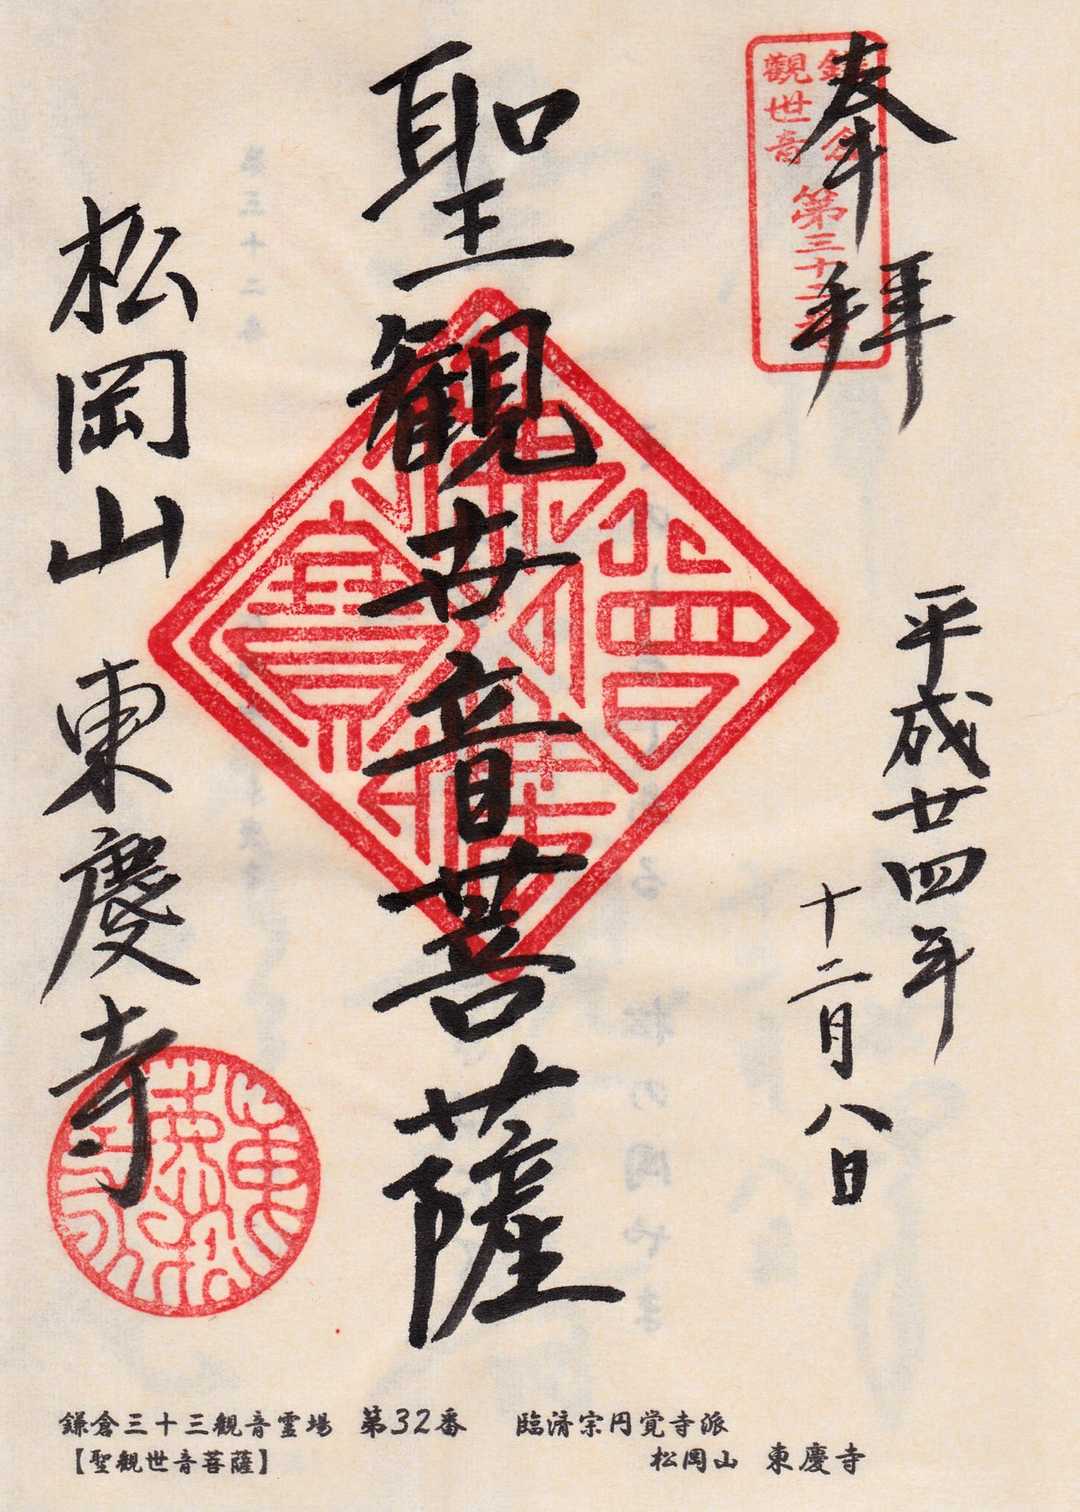 奉拝
鎌倉
觀世音
第三十二番
平成廿四年
十二月八日
聖観世音菩薩
松岡山
東慶寺
鎌倉三十三観音霊場 第32番 臨済宗円覚寺派
【聖観世音菩薩】 松岡山 東慶寺